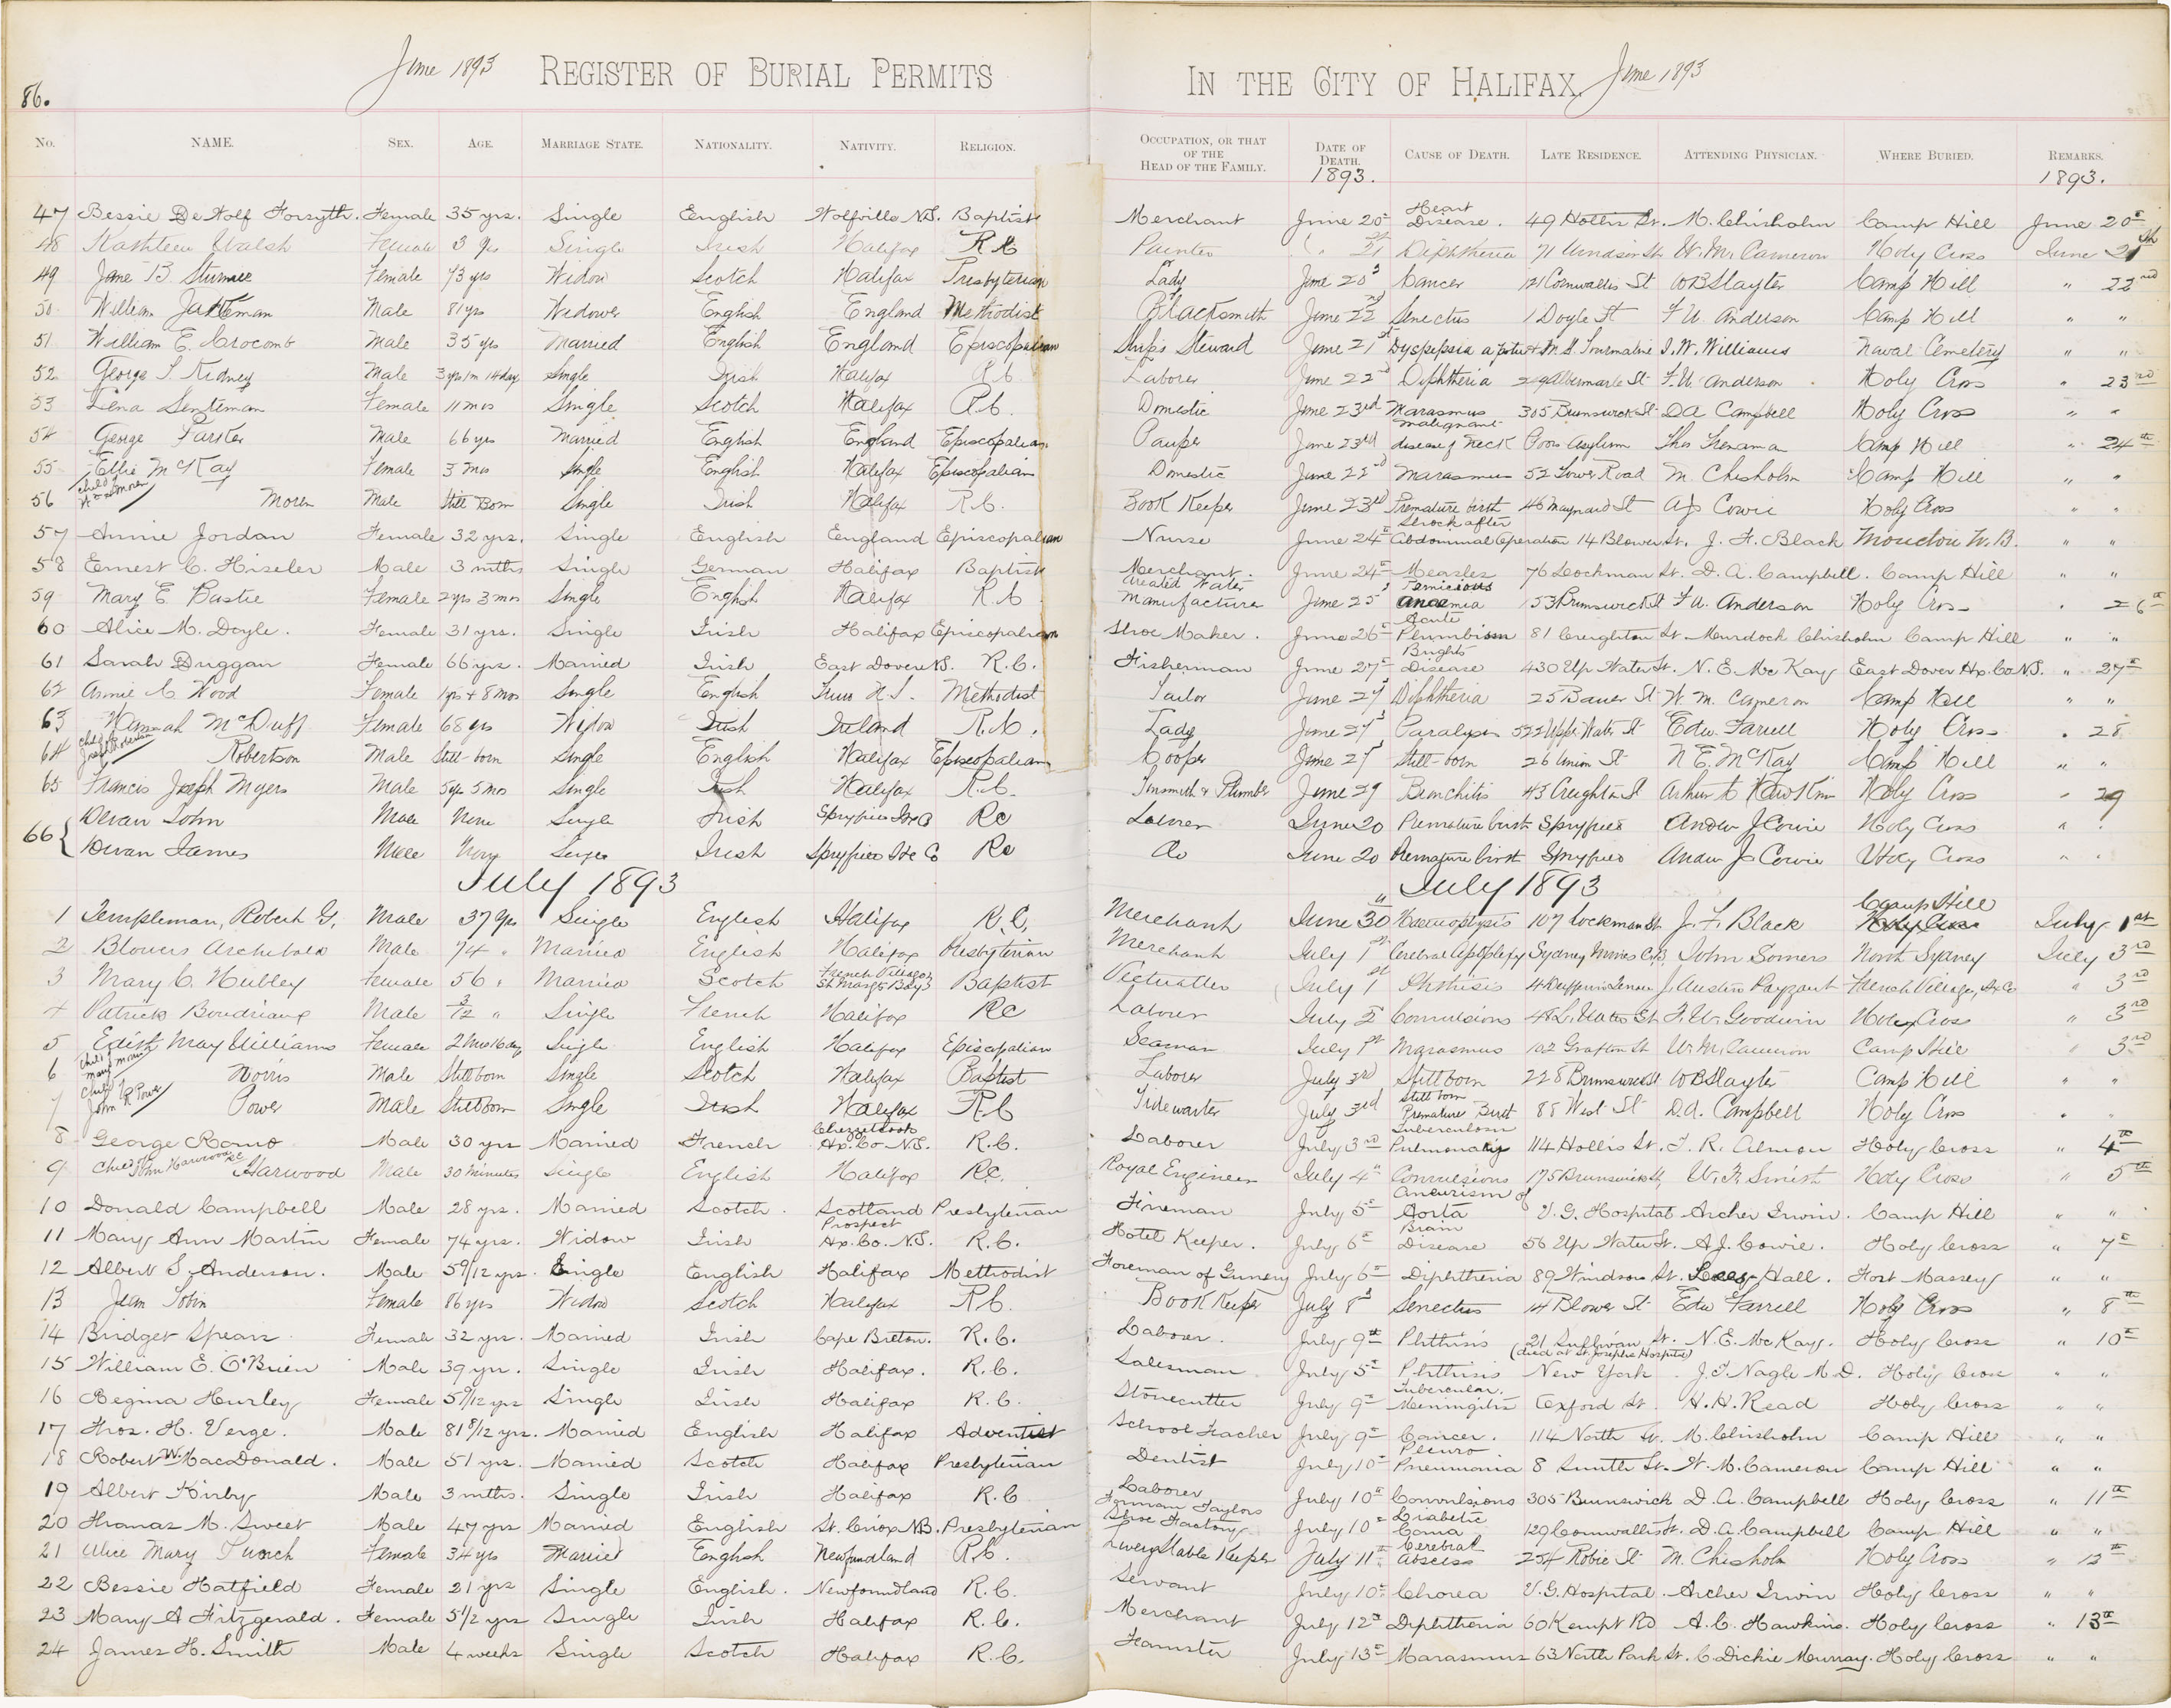 June 1893 REGISTER OF BURIAL PERMITS IN THE CITY OF HALIFAX. June 1893
86.
No. NAME. SEX. AGE. MARRIAGE STATE. NATIONALITY. NATIVITY. RELIGION. OCCUPATION, OR THAT OF THE HEAD OF THE FAMILY. DATE OF DEATH. CAUSE OF DEATH. LATE RESIDENCE. ATTENDING PHYSICIAN. WHERE BURIED. REMARKS.
1893. 1893.
47 Bessie De Wolf Forsyth. Female 35 yrs. Single English Wolfville N.S. Baptist Merchant June 20th Heart Disease. 49 Hollis St. M. Chisholm Camp Hill June 20th
48 Kathleen Walsh Female 3 yrs Single Irish Halifax R C Painter " 21st Diphtheria 71 Windsor St W. M. Cameron Holy Cross June 21st
49 Jane B. Female 73 yrs Widow Scotch Halifax Presbyterian Lady June 20th Cancer 121 Cornwallis St W B Slayter Camp Hill " 22nd
50 William Male 81 yrs Widower English England Methodist Blacksmith June 22nd Senectus 1 Doyle St F. U. Anderson Camp Hill " "
51 William E. Crocomb Male 35 yrs Married English England Episcopalian Ships Steward June 21st Dyspepsia H. M. S. Tourmaline J. W. Williams Naval Cemetery " "
52 George S. Kidney Male 3 yrs 1m 14 day Single Irish Halifax R C. Laborer June 22nd Diphtheria Albermarle St F. U. Anderson Holy Cross " 23rd
53 Lena Senteman Female 11 mos Single Scotch Halifax R C. Domestic June 23rd Marasmus 305 Brunswick St D A Campbell Holy Cross " "
54 George Parker Male 66 yrs Married English England Episcopalian Pauper June 23rd malignant disease of neck Poors Asylum Thos Trenaman Camp Hill " 24th
55 Ellie McKay Female 3 mos Single English Halifax Episcopalian Domestic June 22nd Marasmus 52 Tower Road M. Chisholm Camp Hill " "
56 Child of Moren Male Still Born Single Irish Halifax R. C. Book Keeper June 23rd Premature birth 46 Maynard St A J Cowie Holy Cross " "
57 Annie Jordan Female 32 yrs. Single English England Episcopalian Nurse June 24th Shock after Abdominal Operation 14 Blower St. J. F. Black Moncton N. B. " "
58 Ernest C. Hiseler Male 3 mths Single German Halifax Baptist Merchant. June 24th Measles 76 Lockman St. D. A. Campbell. Camp Hill " "
59 Mary E Bastie Female 2 yrs 3 mos Single English Halifax R. C Aerated Water Manufacturer June 25 Pernicious anaemia 153 Brunswick St F. U. Anderson Holy Cross " 26th
60 Alice M. Doyle. Female 31 yrs. Single Irish Halifax Episcopalian Shoe Maker. June 26th Acute Plumbism 81 Creighton St Murdock Chisholm Camp Hill " "
61 Sarah Duggan Female 66 yrs. Married Irish East Dover N.S. R. C. Fisherman June 27th Brights Disease 430 Up Water St. N. E. McKay East Dover Hx. Co N.S. " 27th
62 Annie C Wood Female 1 yr + 8 mos Single English Truro N S. Methodist Tailor June 27th Diphtheria 25 Bauer St W. M. Cameron Camp Hill " "
63 Hannah McDuff Female 68 yrs Widow Irish Ireland R. C. Lady June 27th Paralysis 522 Upper Water St Edw. Farrell Holy Cross " 28
64 Child of Joseph Robertson Robertson Male Still-born Single English Halifax Episcopalian Cooper June 27th Still-born 26 Union St N E. McKay Camp Hill " "
65 Francis Joseph Myers Male 5 yrs 5 mos Single Irish Halifax R. C. Tinsmith & Plumber June 29 Bronchitis 43 Creighton St Arthur Hawkins Holy Cross " 29
66 { Devan John Male None Single Irish Spryfield Hx Co RC Laborer June 20 Premature birth Spryfield Andw J Cowie Holy Cross " "
Devan James Male None Single Irish Spryfield Hx Co RC Do June 20 Premature birth Spryfield Andw J Cowie Holy Cross " "
July 1893 July 1893
1 Templeman, Robert G. Male 37 yrs Single English Halifax R. C. Merchant June 30th Haemoptysis 107 Lockman St. J. F. Black Camp Hill July 1st
2 Blowers Archibald Male 74 " Married English Halifax Presbyterian Merchant July 1st Cerebral Apoplexy Sydney Mines C.B. John Somers North Sydney July 3rd
3 Mary C. Hubley Female 56 " Married Scotch French Village St Margts Bay Baptist Victualler July 1st Phthisis 4 Dufferin Terrace J. Austen Payzant French Village, Hx Co " 3rd
4 Patrick Boudriaux Male 3/12 " Single French Halifax RC Laborer July 2 Convulsions L. Water St F. W. Goodwin Holy Cross " 3rd
5 Edith May Williams Female 2 mos 16 day Single English Halifax Episcopalian Seaman July 1st Marasmus 102 Grafton St W. M. Cameron Camp Hill " 3rd
6 Child of Norris Male Stillborn Single Scotch Halifax Baptist Laborer July 3rd Stillborn 228 Brunswick St W B Slayter Camp Hill " "
7 Child of John R Power Power Male Stillborn Single Irish Halifax R. C Tidewaiter July 3rd Still born Premature Birth 88 West St D. A. Campbell Holy Cross " "
8 George Romo Male 30 yrs Married French Chezzetcook Hx. Co. N.S. R. C. Laborer July 3rd Tuberculosis Pulmonary 114 Hollis St. T. R. Almon Holy Cross " 4th
9 Child of John Harwood RE Harwood Male 30 Minutes Single English Halifax R.C. Royal Engineer July 4th Convulsions 175 Brunswick St. W. F. Smith Holy Cross " 5th
10 Donald Campbell Male 28 yrs. Married Scotch. Scotland Presbyterian Fireman July 5th Aneurism of Aorta V. G. Hospital Archer Irwin. Camp Hill " "
11 Mary Ann Martin Female 74 yrs. Widow Irish Prospect Hx. Co. N.S. R. C. Hotel Keeper. July 6th Brain Disease 56 Up Water St. A. J. Cowie. Holy Cross " 7th
12 Albert S. Anderson. Male 5 9/12 yrs. Single English Halifax Methodist Foreman of Gunery July 6th Diphtheria 89 Windsor St. Hall. Fort Massey " "
13 Jean Tobin Female 86 yrs Widow Scotch Halifax R C. Book Keeper July 8th Senectus 14 Blower St Edw Farrell Holy Cross " 8th
14 Bridget Spears Female 32 yrs. Married Irish Cape Breton. R. C. Laborer. July 9th Phthisis 21 Sullivan St. (died at St. Josephs Hospital) N. E. McKay. Holy Cross " 10th
15 William E. O'Brien Male 39 yrs. Single Irish Halifax. R. C. Salesman July 5th Phthisis New York J. T. Nagle M. D. Holy Cross " "
16 Regina Hurley Female 5 9/12 yrs Single Irish Halifax R. C. Stonecutter July 9th Tubercular. Meningitis Oxford St. H. H. Read Holy Cross " "
17 Thos. H. Verge. Male 81 8/12 yrs. Married English Halifax Adventist School Teacher July 9th Cancer. 114 North St. M. Chisholm Camp Hill " "
18 Robert W. MacDonald. Male 51 yrs. Married Scotch Halifax Presbyterian Dentist July 10th Pleuro Pneumonia 8 Smith St. W. M. Cameron Camp Hill " "
19 Albert Kirby Male 3 mths. Single Irish Halifax R. C Laborer July 10th Convulsions 305 Brunswick D. A. Campbell Holy Cross " 11th
20 Thomas M. Sweet Male 47 yrs Married English St. Croix N.B. Presbyterian Forman Taylors Shoe Factory July 10th Diabetic Coma 129 Cornwallis St. D. A. Campbell Camp Hill " "
21 Alice Mary Punch Female 34 yrs Married English Newfundland R C. Livery Stable Keeper July 11th Cerebral abscess 254 Robie St M. Chisholm Holy Cross " 12th
22 Bessie Hatfield Female 21 yrs Single English. Newfoundland R. C. Servant July 10th Chorea V. G. Hospital. Archer Irwin Holy Cross " "
23 Mary A Fitzgerald. Female 5 1/2 yrs Single Irish Halifax R. C. Merchant July 12th Diphtheria 60 Kempt Rd A. C. Hawkins. Holy Cross " 13th
24 James H. Smith Male 4 weeks Single Scotch Halifax R. C. Teamster July 13th Marasmus 63 North Park St. C. Dickie Murray. Holy Cross " "